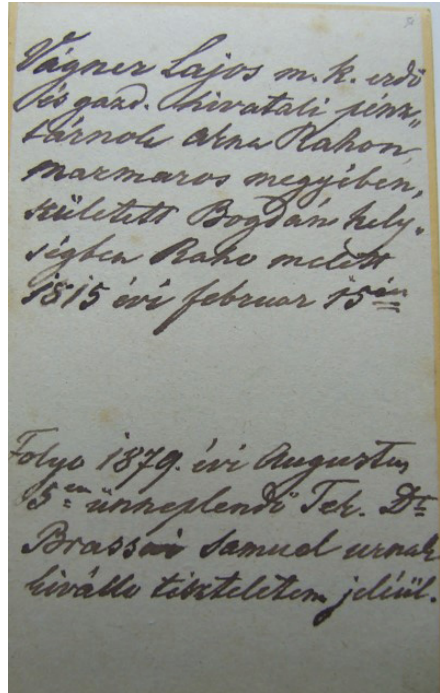 Vágner Lajos m. k. erdő
és gazd. hivatali pénz„
tárnok Akna Rahon,
marmaros megyében,
született Bogdán hely„
ségben Raho mellett
1815 évi februar 15én
Folyo 1879. évi Augustus
5en ünneplendő Tek. Dr
Brassai Samuel urnak
kiválló tiszteletem jeléül.